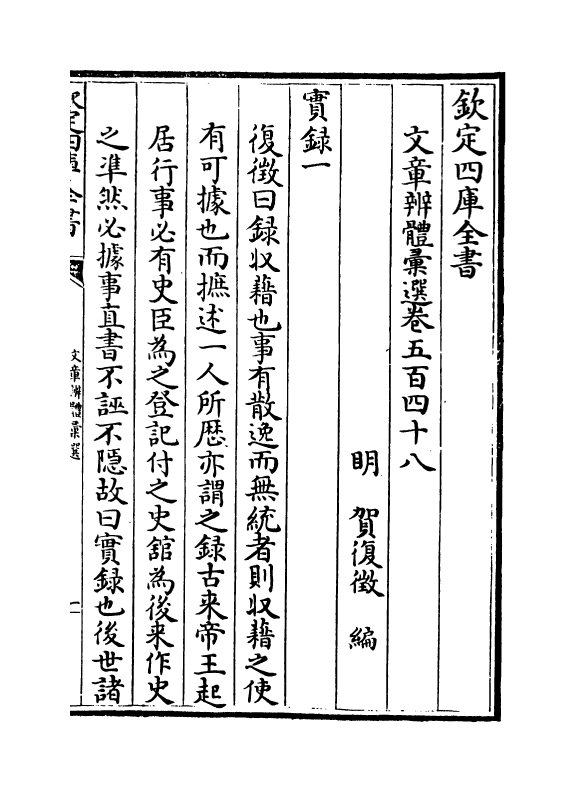 欽定四庫全書
文章辨體彙選卷五百四十八
明 賀復徵 編
實録一
復徵曰録収藉也事有散逸而無統者則収藉之使
有可據也而摭述一人所歴亦謂之録古来帝王起
居行事必有史臣為之登記付之史舘為後来作史
之凖然必據事直書不誣不隱故曰實録也後世諸
欽定四庫全書
文章辨體彙選
一